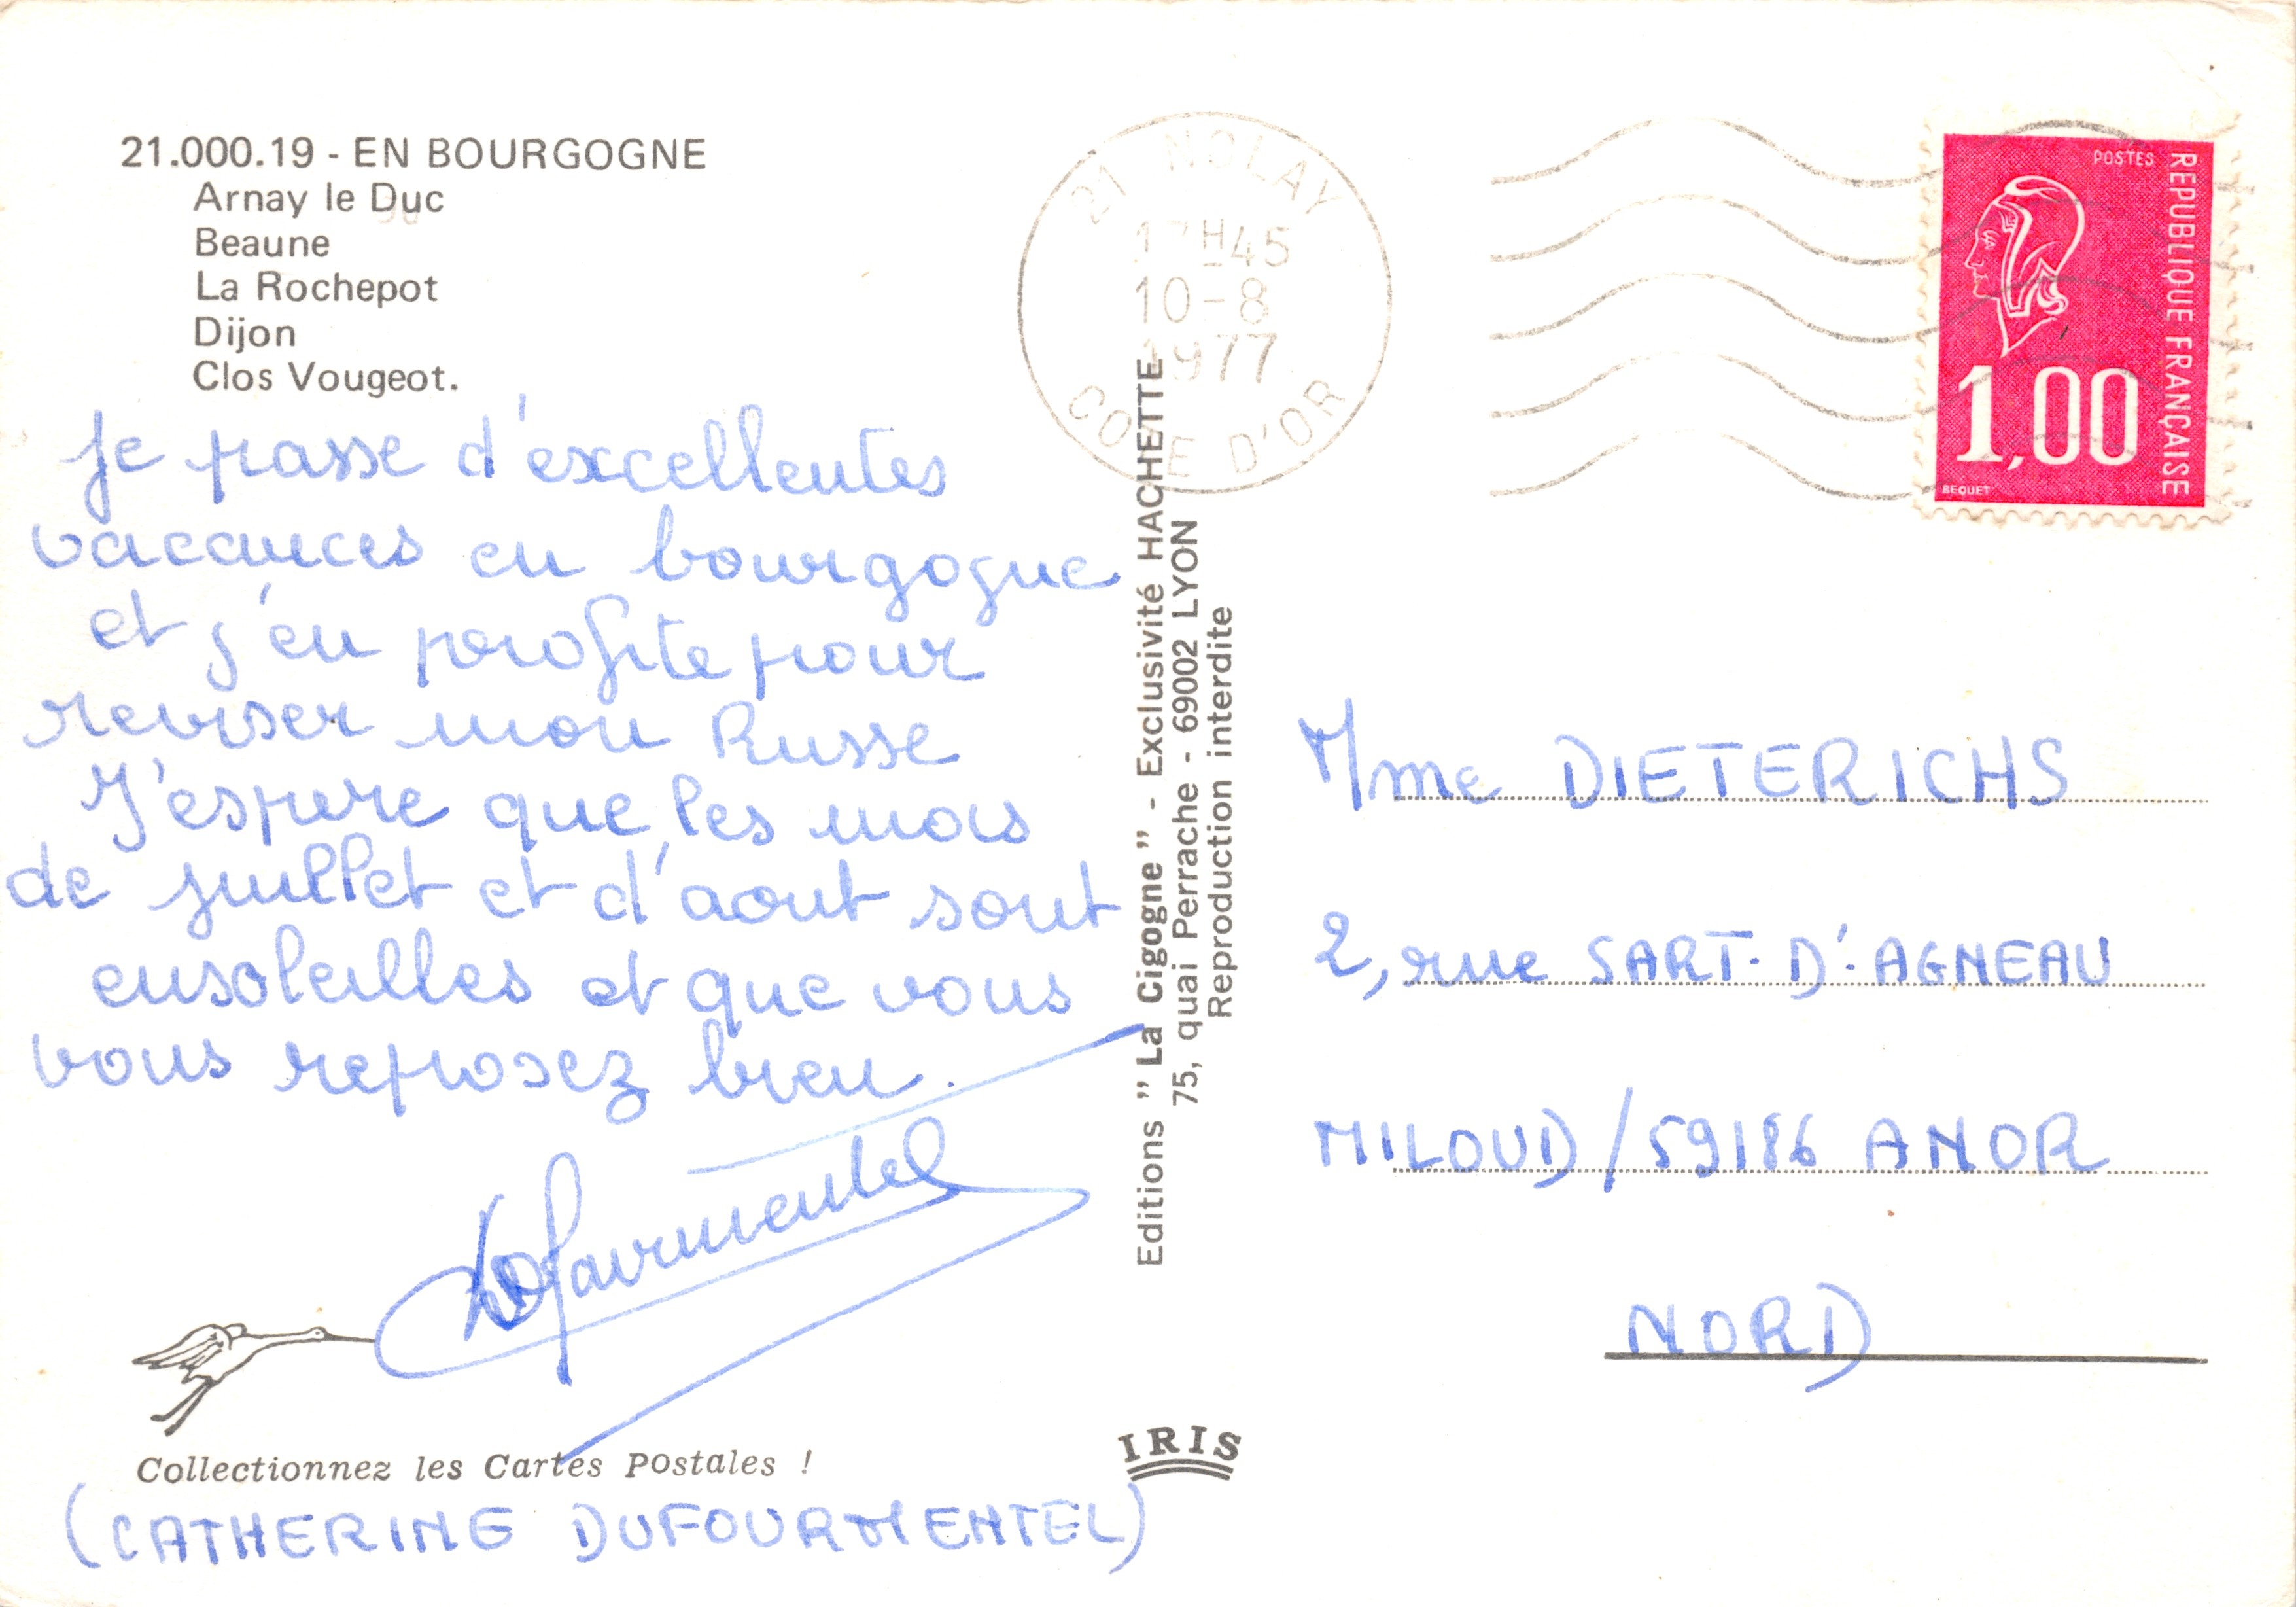 21.000.19 - EN BOURGOGNE
Arnay le Duc
Beaune
La Rochepot
Dijon
Clos Vougeot.
je passe d'excellentes
vacances en bourgogne
et j'en profite pour
reviser mon Russe
J'espere que les mois
de juillet et d'aout sont
ensoleilles et que vous
vous reposez bien.
Dufourmentel
Collectionnez les Cartes Postales !
(CATHERINE DUFOURMENTEL)
Editions " La Cigogne " - Exclusivité HACHETTE
75, quai Perrache - 69002 LYON
Reproduction interdite
IRIS
21 NOLAY
H45
10-8
1977
COTE D'OR
POSTES
REPUBLIQUE FRANÇAISE
1,00
BEQUET
Mme DIETERICHS
2, rue SART-D'AGNEAU
MILOUD/59186 ANOR
NORD